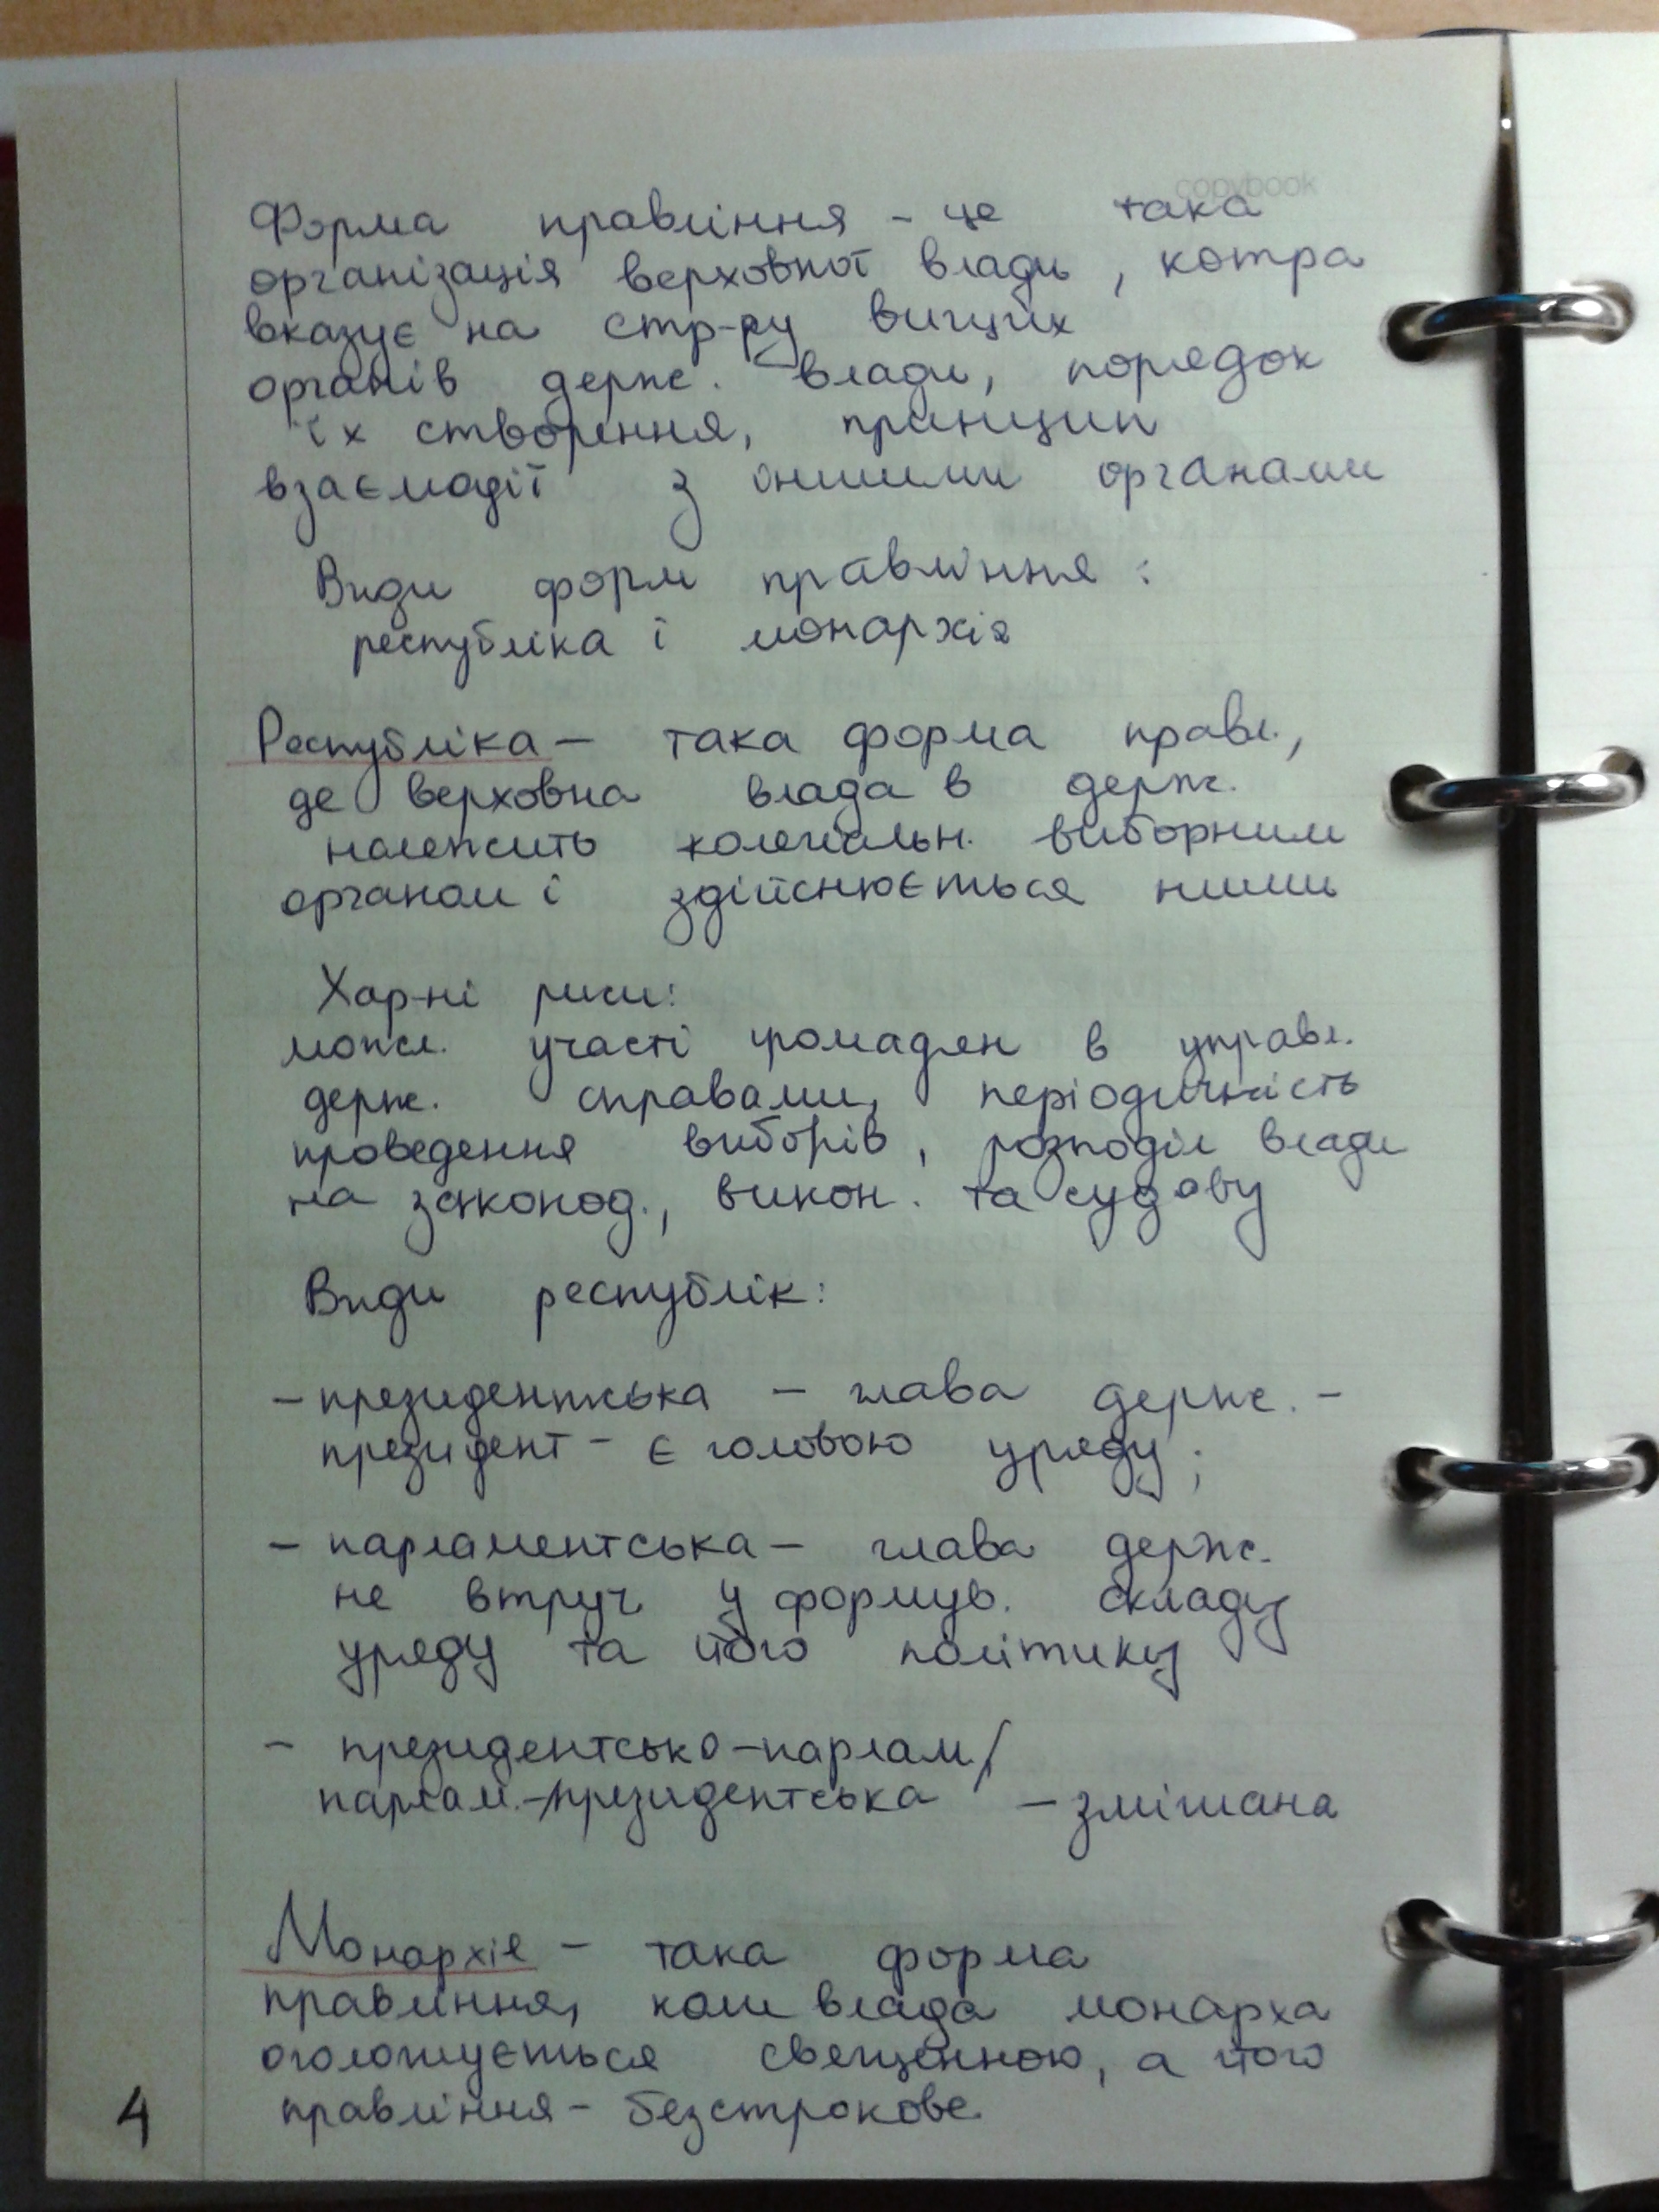 copybook
Форма правління - це така
організація верховної влади, котра
вказує на стр-ру вищих
органів держ. влади, порядок
їх створення, принцип
взаємодії з іншими органами
Види форм правління:
республіка і монархія
Республіка - така форма правл.,
де верховна влада в держ.
належить колегіальн. виборним
органам і здійснюється ними
Хар-ні риси:
можл. участі громадян в управл.
держ. справами, періодичність
проведення виборів, розподіл влади
на законод., викон. та судову
Види республік:
- президентська - глава держ. -
президент - є головою уряду;
- парламентська - глава держ.
не втруч у формув. складу
уряду та його політику
- президентсько-парлам/
парлам.-президентська - змішана
Монархія - така форма
правління, коли влада монарха
оголошується священною, а його
правління - безстрокове.
4